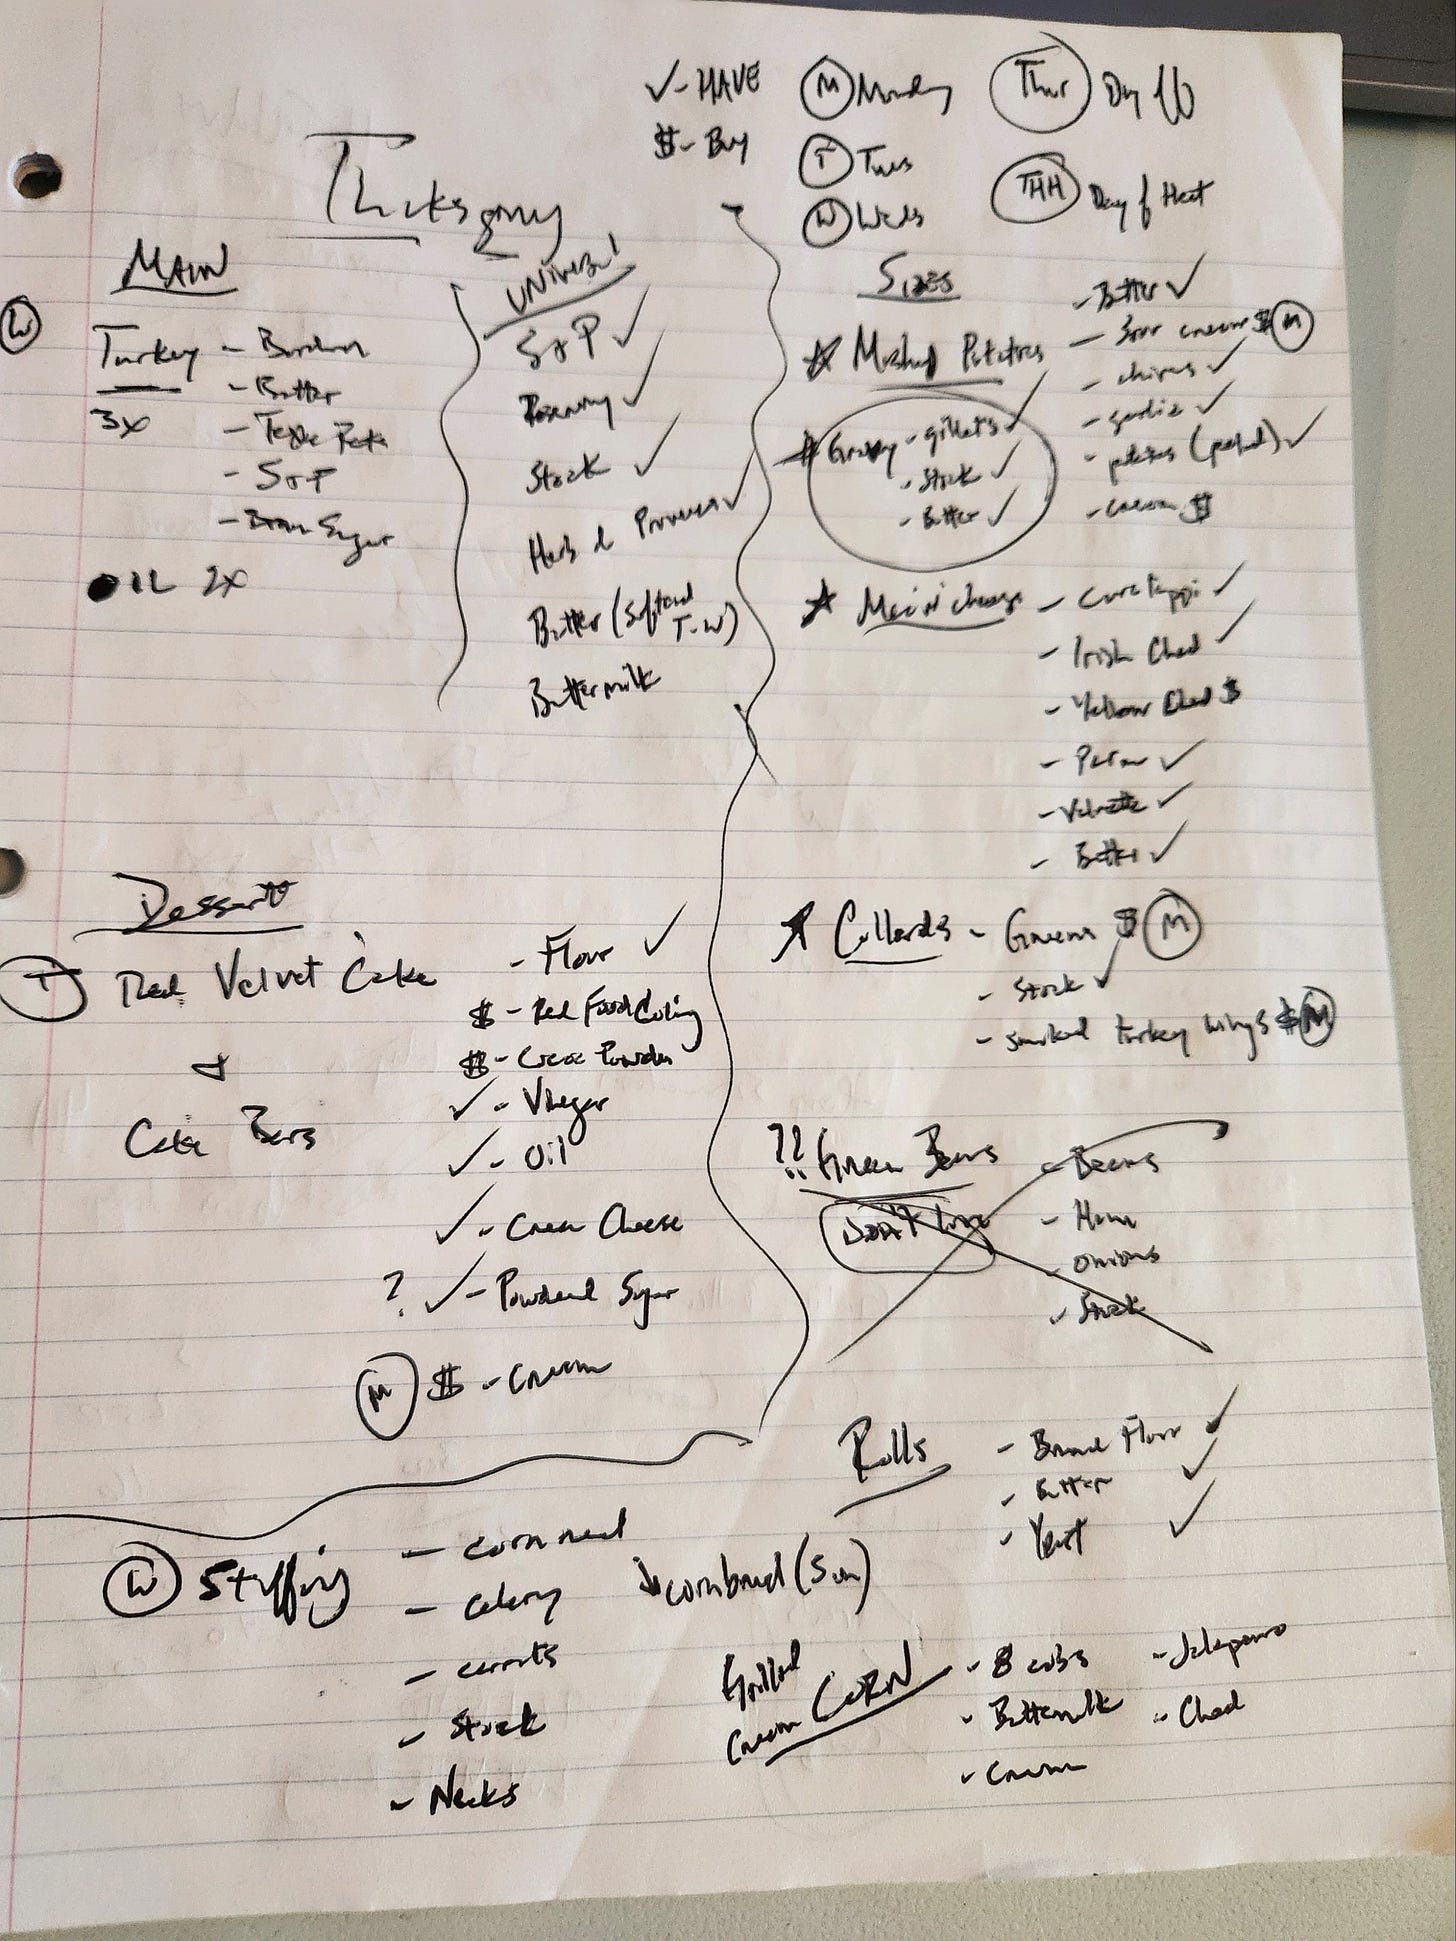 ✓ - HAVE
$ - Buy
Ⓜ Monday
Ⓣ Tues
Ⓦ Weds
Thur Day of
THH Day of Heat
Thanksgiving
MAIN
Ⓦ
Turkey -
3x
- Butter
- S & P
- Brown Sugar
OIL 2x
UNIVERSAL
S & P ✓
Rosemary ✓
Stock ✓
Herb d Provence ✓
Butter (softened T-W)
Buttermilk
SIDES
☆ Mashed Potatoes
- Butter ✓
- Sour cream $ Ⓜ
- chives ✓
- garlic ✓
- potatoes (peeled) ✓
- cream $
☆ Gravy - gillets ✓
- Stock ✓
- Butter ✓
☆ Mac n cheese - Cavatappi ✓
- Irish Ched ✓
- Yellow Ched $
- Parm ✓
- Velveeta ✓
- Butter ✓
☆ Collards - Greens $ Ⓜ
- Stock ✓
- smoked turkey wings $ Ⓜ
?? Green Beans
DON'T love
- Beans
- Ham
- onions
- Stock
Dessert
Ⓣ Red Velvet Cake
&
Cake Bars
- Flour ✓
$ - Red Food Coloring
$ - Cocoa Powder
✓ - Vinegar
✓ - Oil
✓ - Cream Cheese
? ✓ - Powdered Sugar
Ⓜ $ - Cream
Rolls
- Bread Flour ✓
- Butter ✓
- Yeast ✓
Ⓦ Stuffing
- cornmeal
- celery
- carrots
- Stock
- Necks
↳ cornbread (Sun)
Grilled
Cream CORN
- 8 cobs
- Buttermilk
- Cream
- Jalapeno
- Ched